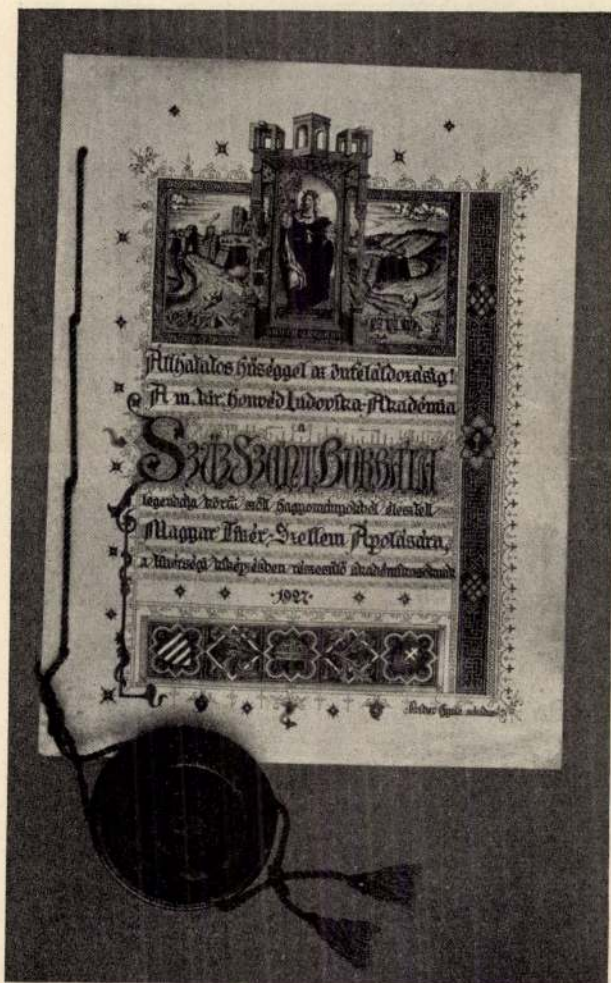 Állhatatos hűséggel az önfeláldozásig!
A m. kir. honvéd Ludovika-Akadémia
a
SZŰZ SZENT BORBÁLA
legendája körül szőtt hagyományokból élesztett
Magyar Tüzér-Szellem Ápolására,
a tüzérségi kiképzésben részesülő akadémikusoknak
1927